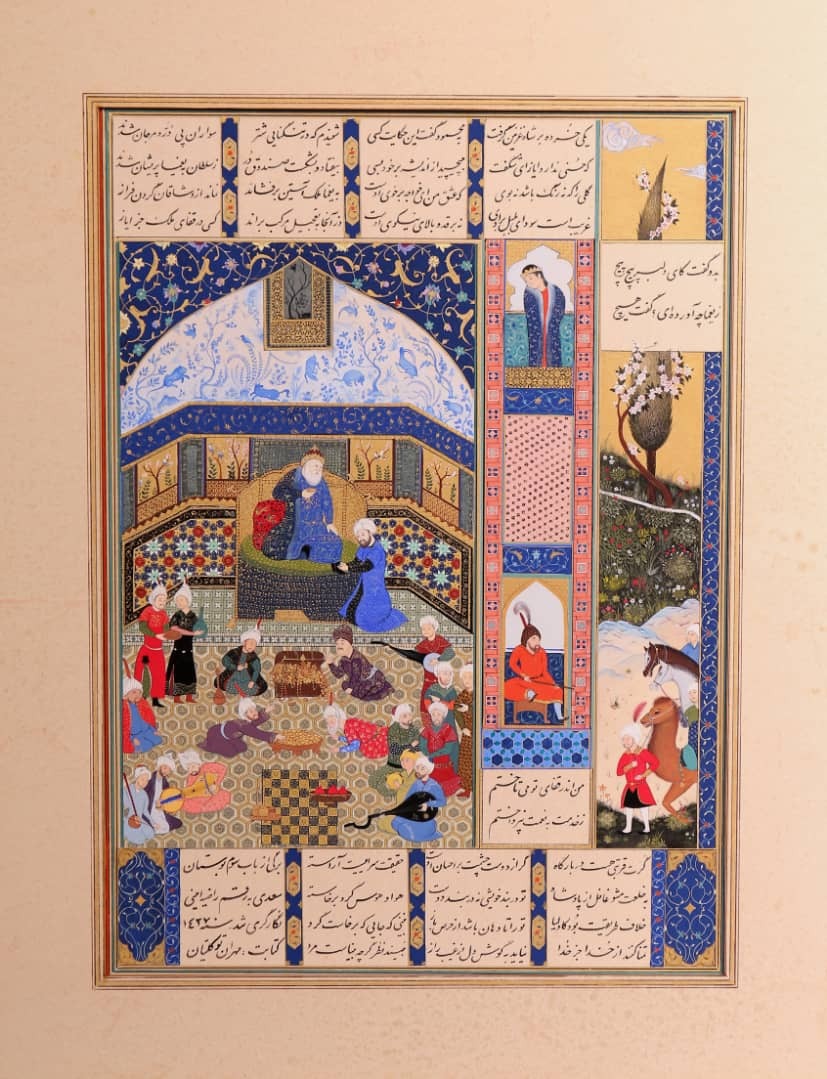 یکی خرده بر شاه غزنین گرفت
که حسنی ندارد ایاز ای شگفت
گلی را که نه رنگ باشد نه بوی
غریب است سودای بلبل بر اوی
به محمود گفت این حکایت کسی
بپیچید از اندیشه بر خود بسی
که عشق من ای خواجه بر خوی اوست
نه بر قد و بالای نیکوی اوست
شنیدم که در تنگنایی شتر
بیفتاد و بشکست صندوق در
به یغما ملک آستین برفشاند
وز آنجا بتعجیل مرکب براند
سواران پی در و مرجان شدند
ز سلطان بیغما پریشان شدند
نماند از وشاقان گردن فراز
کسی در قفای ملک جز ایاز
بدو گفت کای دلبر پیچ پیچ
ز یغما چه آورده‌ای؟ گفت هیچ
من اندر قفای تو می تاختم
ز خدمت به نعمت نپرداختم
گرت قربتی هست در بارگاه
به خلعت مشو غافل از پادشاه
خلاف طریقت بود کاولیا
تمنا کنند از خدا جز خدا
گر از دوست چشمت بر احسان اوست
تو در بند خویشی نه در بند دوست
تو را تا دهان باشد از حرص باز
نیاید به گوش دل از غیب راز
حقیقت سراییست آراسته
هوا و هوس گرد برخاسته
نبینی که جایی که برخاست گرد
نبیند نظر گرچه بیناست مرد
برگی از باب سوم بوستان
سعدی به رقم راضیه
نگارگری شد سنه ۱۴۲۷
کتابت: مهران توکلیان